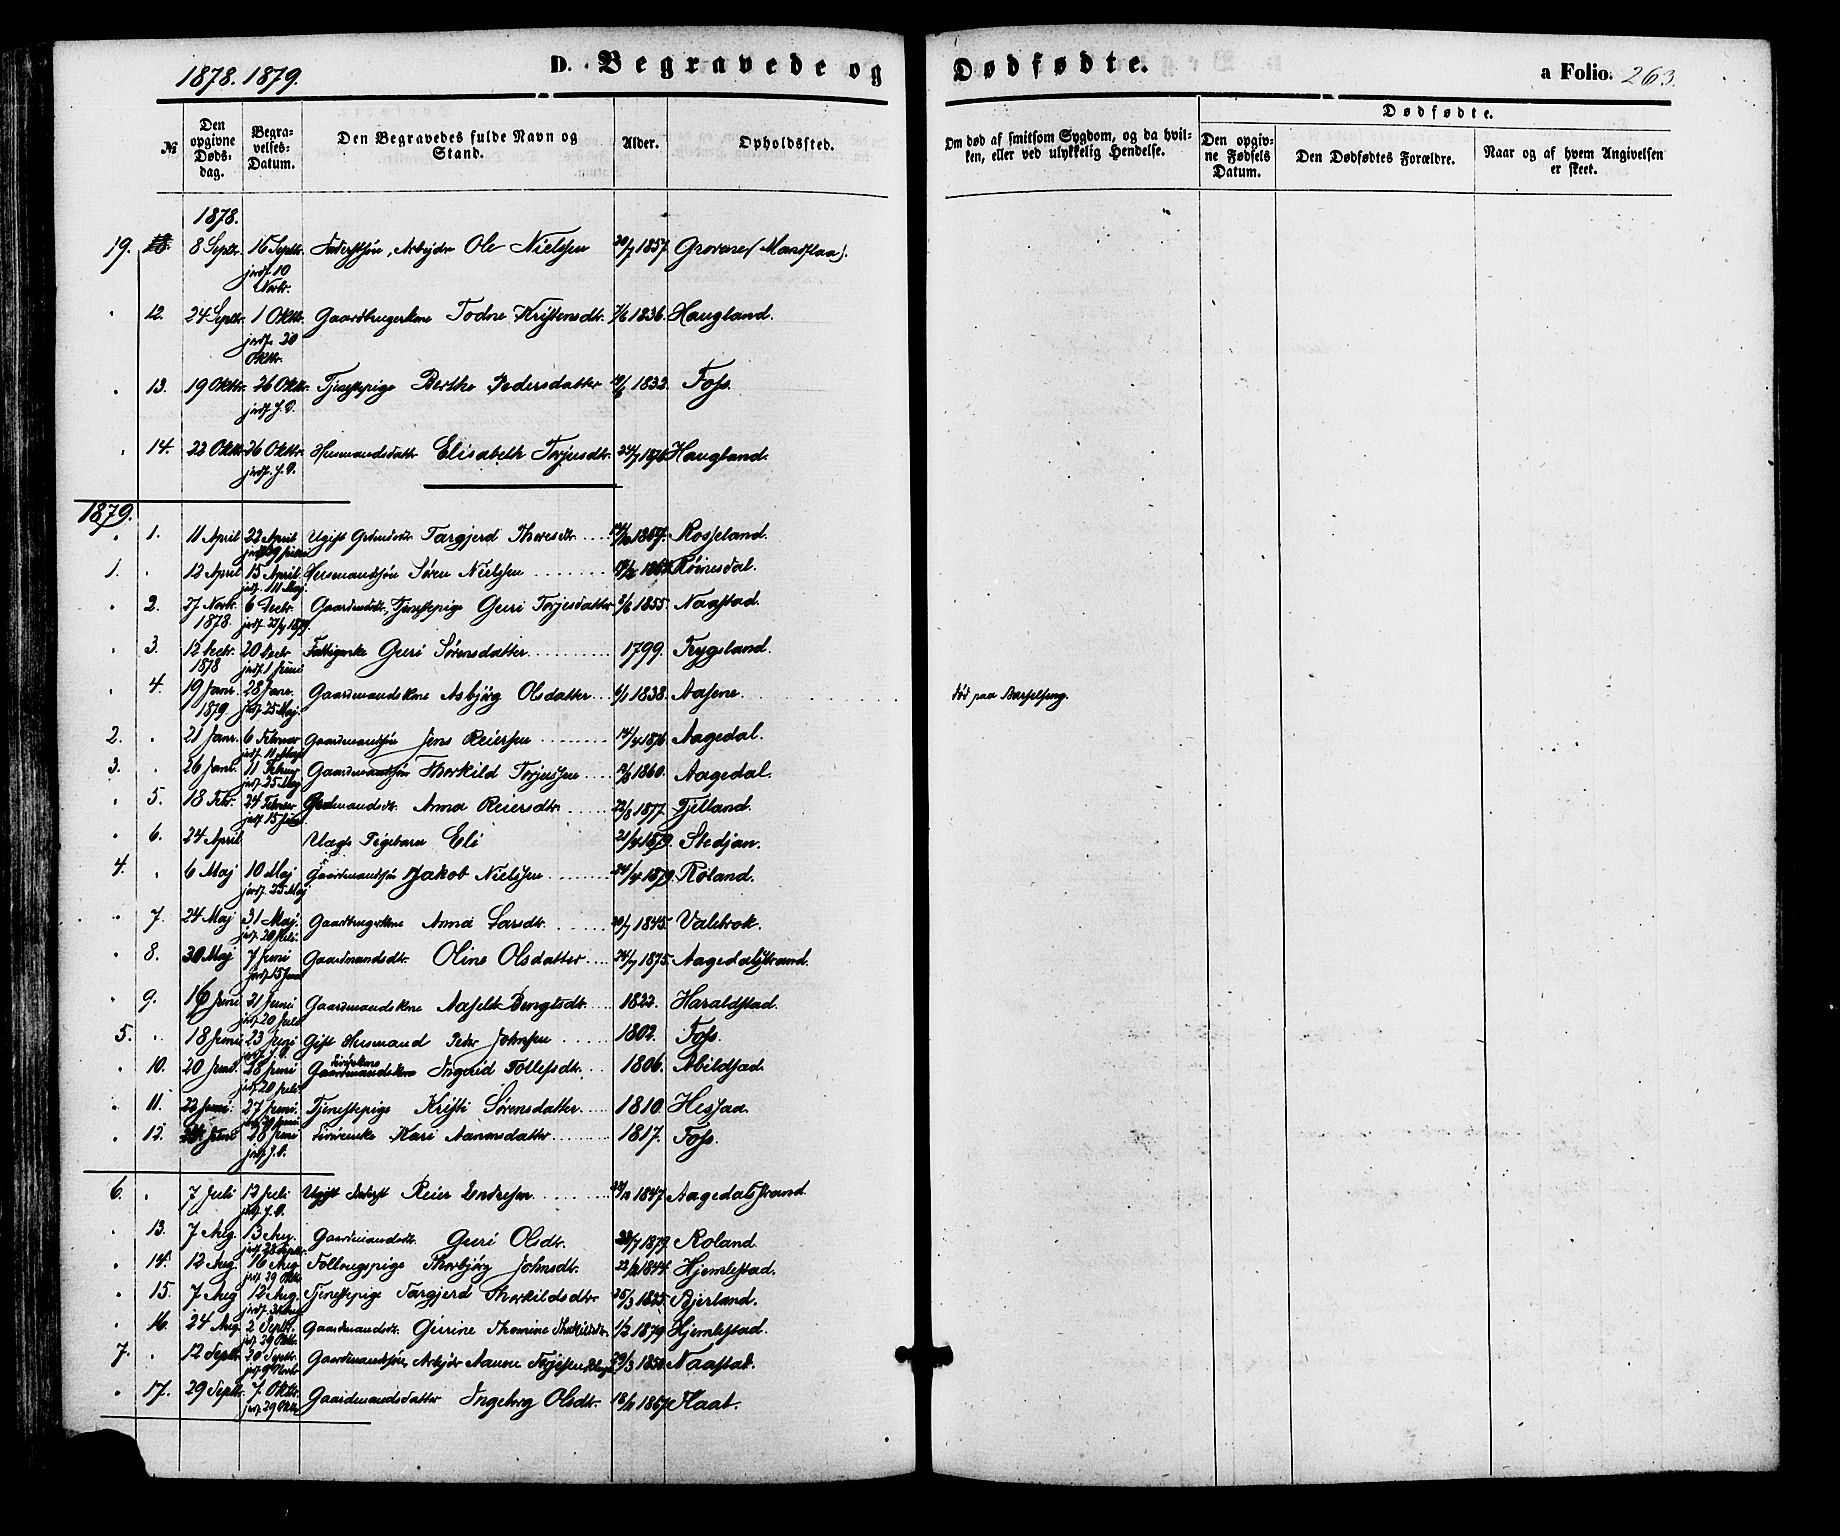 1878. 1879.
D. Begravede og Dødfødte.
a Folio. 263.
№
Den opgivne Døds-dag.
Begra-velses-Datum.
Den Begravedes fulde Navn og Stand.
Alder.
Opholdssted.
Om død af smitsom Sygdom, og da hvil-ken, eller ved ulykkelig Hendelse.
Dødfødte.
Den opgiv-ne Fødsels Datum.
Den Dødfødtes Forældre.
Naar og af hvem Angivelsen er skeet.
1878.
19. 8 Septr. 16 Septr. jordf. 10 Novbr. Inderstsøn, Arbejder Ole Nielsen 20/7 1857. Grovene (Mandflaa).
" 12. 24 Septr. 1 Oktbr. jordf. 20 Oktbr. Gaardbrugerkone Todne Kristensdtr. 7/6 1836. Haugland.
" 13. 19 Oktbr. 26 Oktbr. jordf. s. D. Tjenestepige Berthe Pedersdatter 1832. Foss.
" 14. 22 Oktbr. 26 Oktbr. jordf. s. D. Husmandsdatter Elisabeth Torjusdtr. 1876 Haugland.
1879.
" 1. 11 April 22 April Ugift Targjerd Thoresdtr. Rosseland.
1. " 12 April 15 April jordf. 11 Maj. Husmandssøn Søren Nielsen Røinesdal.
" 2. 27 Novbr. 1878. 6 Decbr. jordf. 1879. Gaardmdtr., Tjenestepige Guri Torjesdatter 8/6 1855. Naastad.
" 3. 12 Decbr. 1878 20 Decbr. jordf. 1 Juni Fattigenke Guri Sørensdatter 1799. Frygsland.
" 4. 19 Janr. 1879 28 Janr. jordf. 25 Maj. Gaardmandskone Asbjørg Olsdatter 1838. Aasene. død paa Barselseng.
2. " 21 Janr. 6 Februar jordf. 11 Maj Gaardmandssøn Jens Reiersen 14/4 1876 Aagedal.
3. " 26 Janr. 11 Februar jordf. 25 Maj Gaardmandssøn Thorkild Torjussen 1860. Aagedal.
" 5. 18 Febr. 24 Februar jordf. 15 Juni Gaardmandsdtr. Anna Reiersdtr. 22/8 1877. Fjelland.
" 6. 24 April Uægte Pigebarn Eli 21/4 1879. Stedjan.
4. " 6 Maj 10 Maj jordf. 25 Maj Gaardmandssøn Jakob Nielsen 24/4 1879. Røland.
" 7. 24 Maj 31 Maj. jordf. 20 Juli. Gaardbrugerkone Anna Larsdtr. 20/7 1845. Valebrok.
" 8. 30 Maj 7 Juni jordf. 15 Juni Gaardmandsdtr. Oline Olsdatter 24/7 1875. Aagedalstrand.
" 9. 16 Juni 21 Juni jordf. 20 Juli Gaardmandskone Aaselt Bengtsdtr. 1822. Haraldstad.
5. " 18 Juni 23 Juni jordf. s. D. Gift Husmand Peder Johnsen 1802. Foss.
" 10. 20 Juni. 28 Juni jordf. 20 Juli Ingerid Tollefsdtr. 1806. Abildstad.
" 11. 22 Juni. 27 Juni. jordf. 29 Juni Tjenestepige Kristi Sørensdatter 1810. Hessaa.
" 12. Juni 28 Juni jordf. s. D. Kari Aanensdatter 1817. Foss.
6. " 7 Juli 12 Juli jordf. s. D. Ugift Inderst Reier Endresen 1847. Aagedalstrand.
" 13. 7 Aug. 13 Aug. jordf. 28 Septbr. Gaardmandsdtr. Guri Olsdtr. 1879. Roland.
" 14. 12 Aug. 16 Aug jordf. 29 Oktbr Thorbjørg Johnsdtr. 1844. Hjemlestad.
" 15. 7 Aug 12 Aug. jordf. 31 Aug Tjenestepige Targjerd Thorkildsdtr. 25/3 1825. Bjerland.
" 16. 24 Aug. 2 Septr. jordf. 29 Oktbr. Gaardmandsdtr. Gurine Thomine Thorkildsdtr. 1/2 1879 Hjemlestad.
7. " 12 Septr. 20 Septbr. Gaardmandssøn, Arbejder Aanen Torjussen 29/3 1850 Naastad.
" 17. 29 Septr. 7 Oktbr. jordf. 29 Oktbr Gaardmandsdatter Ingeborg Olsdtr. 1867. Flaat.